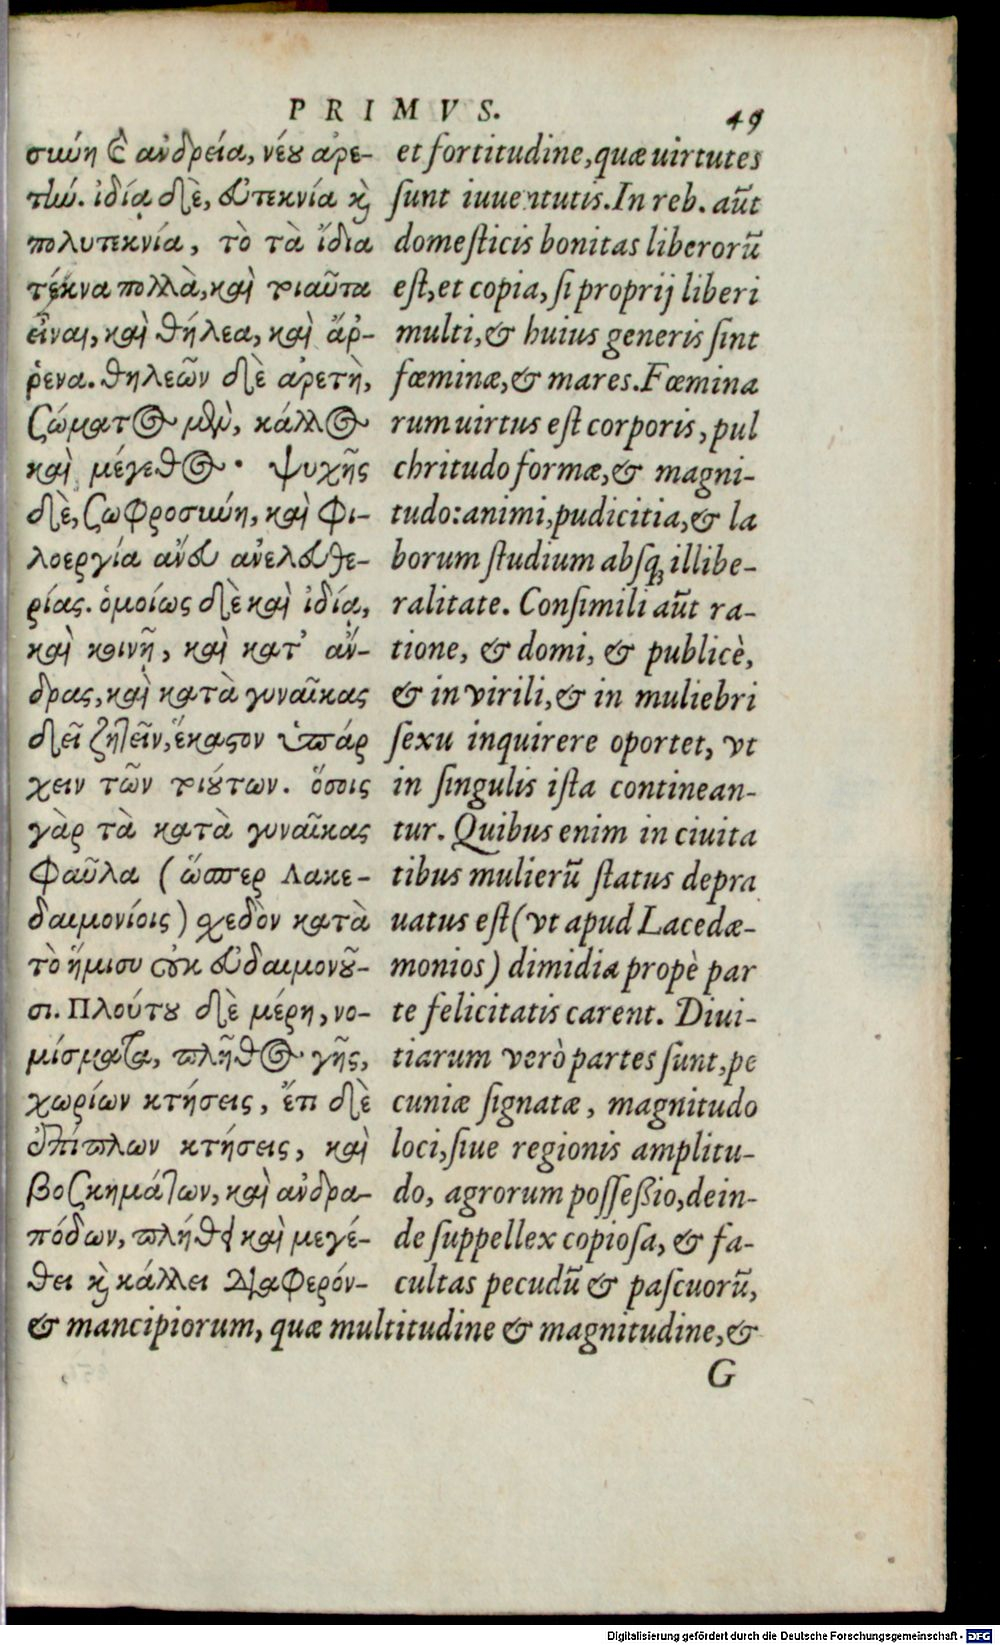 PRIMVS.
49
σύνη & ἀνδρεία, νέου ἀρε-
τών. ἰδίᾳ δὲ, εὐτεκνία κỳ
πολυτεκνία, τὸ τὰ ἴδια
τέκνα πολλὰ, καὶ τοιαῦτα
εἶναι, καὶ θήλεα, καὶ ἄρ-
ῥενα. θηλεῶν δὲ ἀρετὴ,
σώματος μὲν, κάλλος
καὶ μέγεθος· ψυχῆς
δὲ, σωφροσύνη, καὶ φι-
λοεργία ἄνευ ἀνελευθε-
ρίας. ὁμοίως δὲ καὶ ἰδίᾳ,
καὶ κοινῇ, καὶ κατ’ ἄν-
δρας, καὶ κατὰ γυναῖκας
δεῖ ζητεῖν, ἕκαστον ὑπάρ
χειν τῶν τοιούτων. ὅσοις
γὰρ τὰ κατὰ γυναῖκας
φαῦλα (ὥσπερ Λακε-
δαιμονίοις) σχεδὸν κατὰ
τὸ ἥμισυ οὐκ εὐδαιμονοῦ-
σι. Πλούτου δὲ μέρη, νο-
μίσματα, πλῆθος γῆς,
χωρίων κτήσεις, ἔτι δὲ
ἐπίπλων κτήσεις, καὶ
βοσκημάτων, καὶ ἀνδρα-
πόδων, πλήθει καὶ μεγέ-
θει κỳ κάλλει διαφερόν-
et fortitudine, quæ uirtutes
sunt iuuentutis. In reb. aũt
domesticis bonitas liberorũ
est, et copia, si proprij liberi
multi, & huius generis sint
fœminæ, & mares. Fœmina
rum uirtus est corporis, pul
chritudo formæ, & magni-
tudo: animi, pudicitia, & la
borum studium absq; illibe-
ralitate. Consimili aũt ra-
tione, & domi, & publicè,
& in virili, & in muliebri
sexu inquirere oportet, vt
in singulis ista continean-
tur. Quibus enim in ciuita
tibus mulierũ status depra
uatus est (vt apud Lacedæ-
monios) dimidia propè par
te felicitatis carent. Diui-
tiarum verò partes sunt, pe
cuniæ signatæ, magnitudo
loci, siue regionis amplitu-
do, agrorum possessio, dein-
de suppellex copiosa, & fa-
cultas pecudũ & pascuorũ,
& mancipiorum, quæ multitudine & magnitudine, &
G
Digitalisierung gefördert durch die Deutsche Forschungsgemeinschaft - DFG